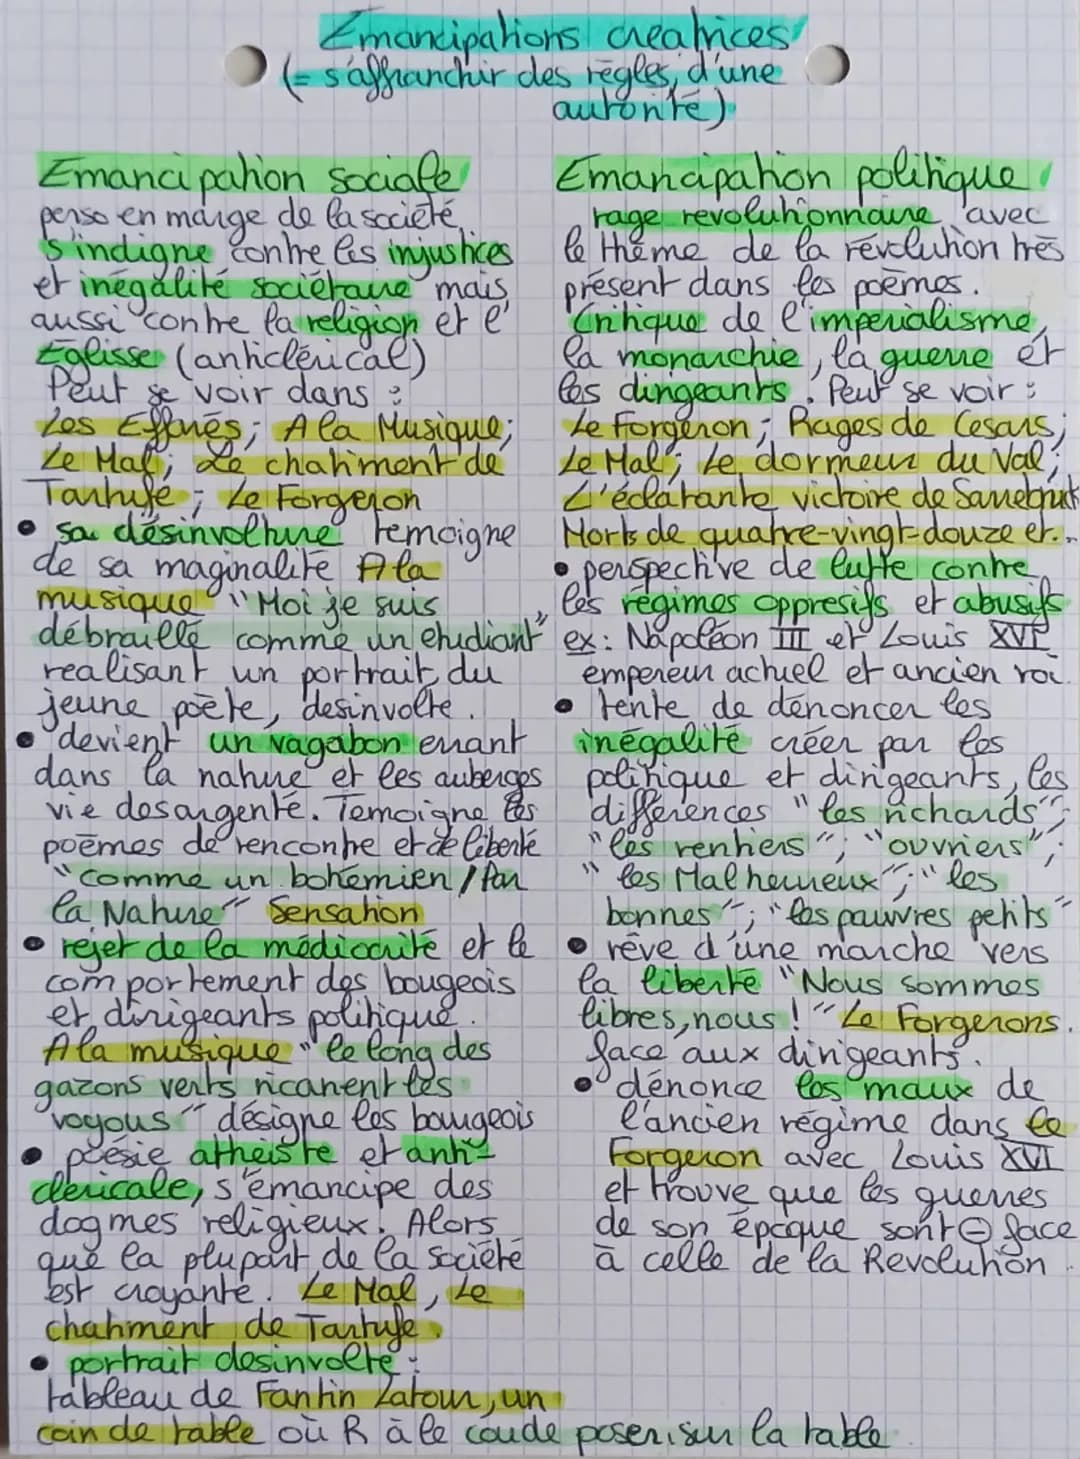 Emancipations creatrices
(= s'affranchir des règles, d'une
autorité)
Emancipation sociale
perso en marge de la société,
s'indigne contre les injustices
et inégalité sociétaire mais
aussi contre la religion et l'
Eglisse (anticlérical)
Peut se voir dans :
Les Effarés; A la Musique;
Le Mal; Le chatiment de
Tartufe ; Le Forgeron
• sa désinvolture temoigne
de sa maginalité A la
musique "Moi je suis
débraillé comme un etudiant"
realisant un portrait du
jeune poète, desinvolte.
• devient un vagabon errant
dans la nature et les auberges
vie desargenté. Temoigne les
poèmes de rencontre et de liberté
"comme un bohémien / Par
la Nature" Sensation
• rejet de la médiocrité et le
comportement des bougeois
et dirigeants politique.
A la musique "le long des
gazons verts ricanent les
voyous" désigne les bourgeois
• poésie athéiste et anti-
clericale, s'émancipe des
dogmes religieux. Alors
que la plupart de la société
est croyante. Le Mal, Le
chatiment de Tartufe.
• portrait desinvolte :
tableau de Fantin Latour, un
coin de table où R à le coude poser sur la table.
Emancipation politique
rage revolutionnaire avec
le thème de la révolution très
présent dans les poèmes.
Critique de l'imperialisme,
la monarchie, la guerre et
les dirigeants. Peut se voir :
Le Forgeron ; Rages de Cesars;
Le Mal ; Le dormeur du Val;
L'éclatante victoire de Sarrebruck
Morts de quatre-vingt-douze et...
• perspective de lutte contre
les régimes oppresifs et abusifs
ex: Napoléon III et Louis XVI
empereur actuel et ancien roi.
• tente de dénoncer les
inégalité créer par les
politique et dirigeants, les
différences "les richards";
"les rentiers"; "ouvriers";
"les Malheureux"; "les
bonnes"; "les pauvres petits"
• rêve d'une marche vers
la liberté "Nous sommes
libres, nous !" Le Forgerons.
face aux dirigeants.
• dénonce les maux de
l'ancien régime dans Le
Forgeron avec Louis XVI
et trouve que les guerres
de son époque sont ⊖ face
à celle de la Revolution.